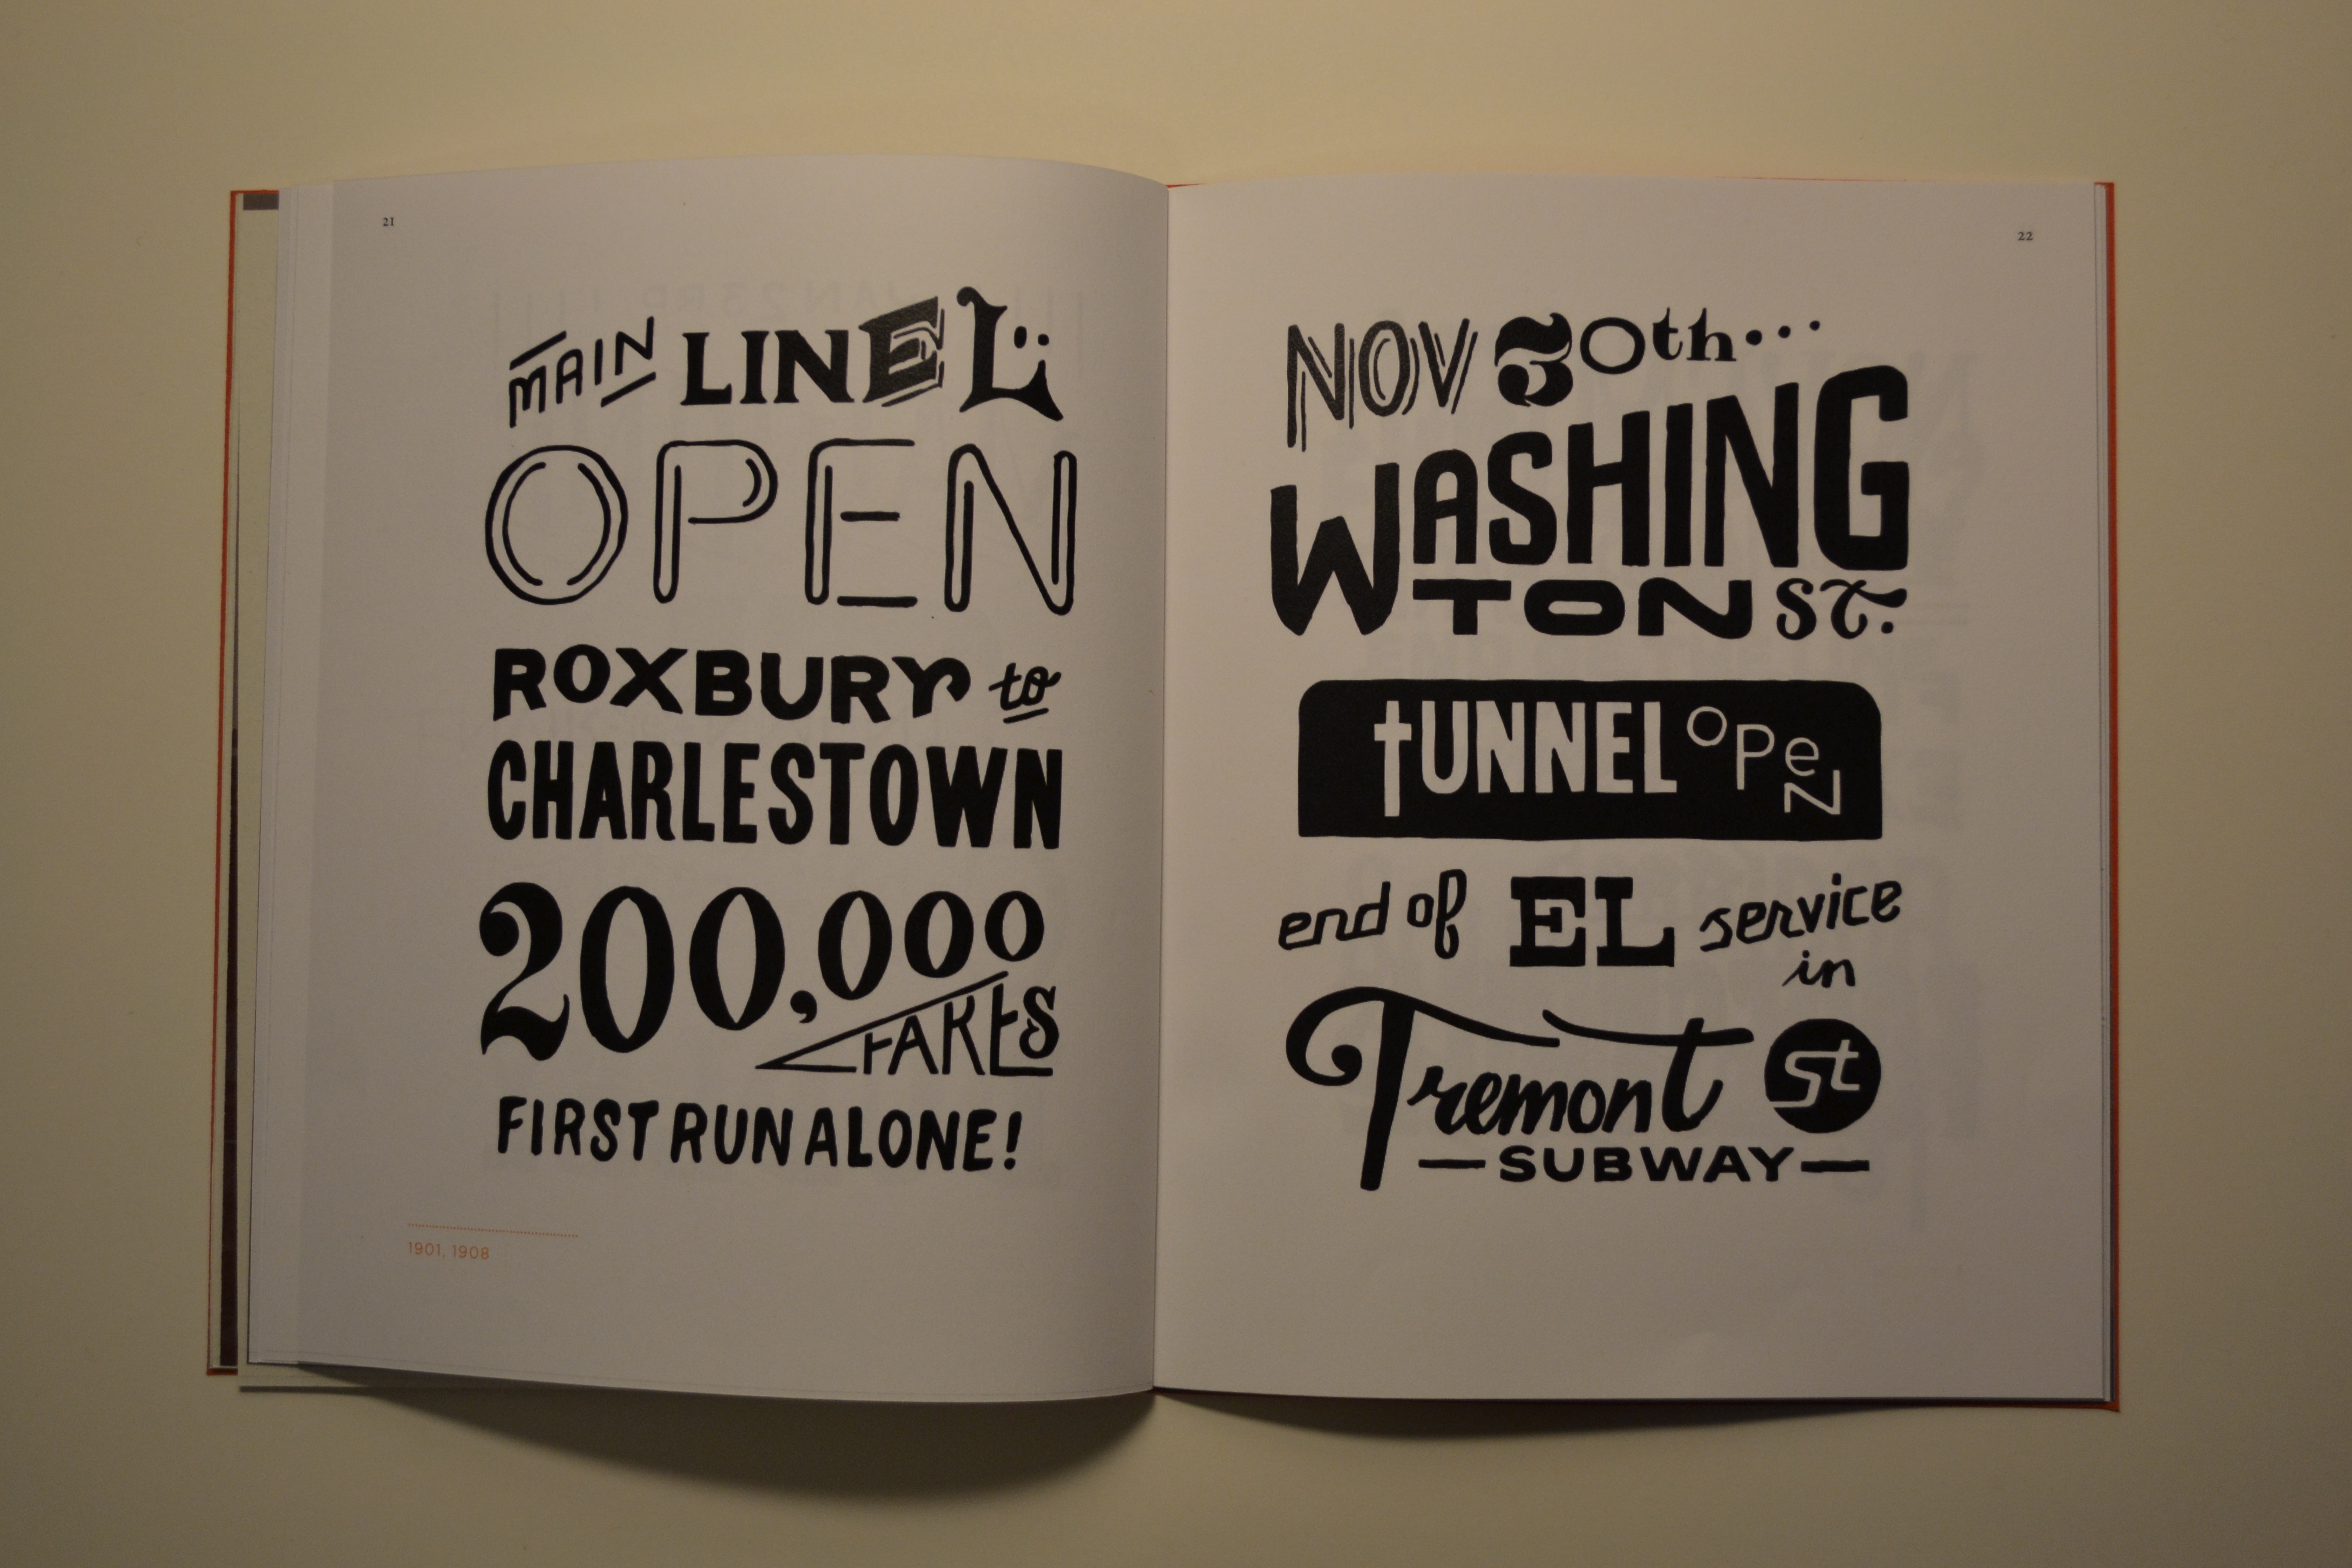 21
MAIN LINE L
OPEN
ROXBURY to
CHARLESTOWN
200,000
FARES
FIRST RUN ALONE!
1901, 1908
22
NOV 30th...
WASHING
TON ST.
tUNNEL OPeN
end of EL service
in
Tremont St
SUBWAY